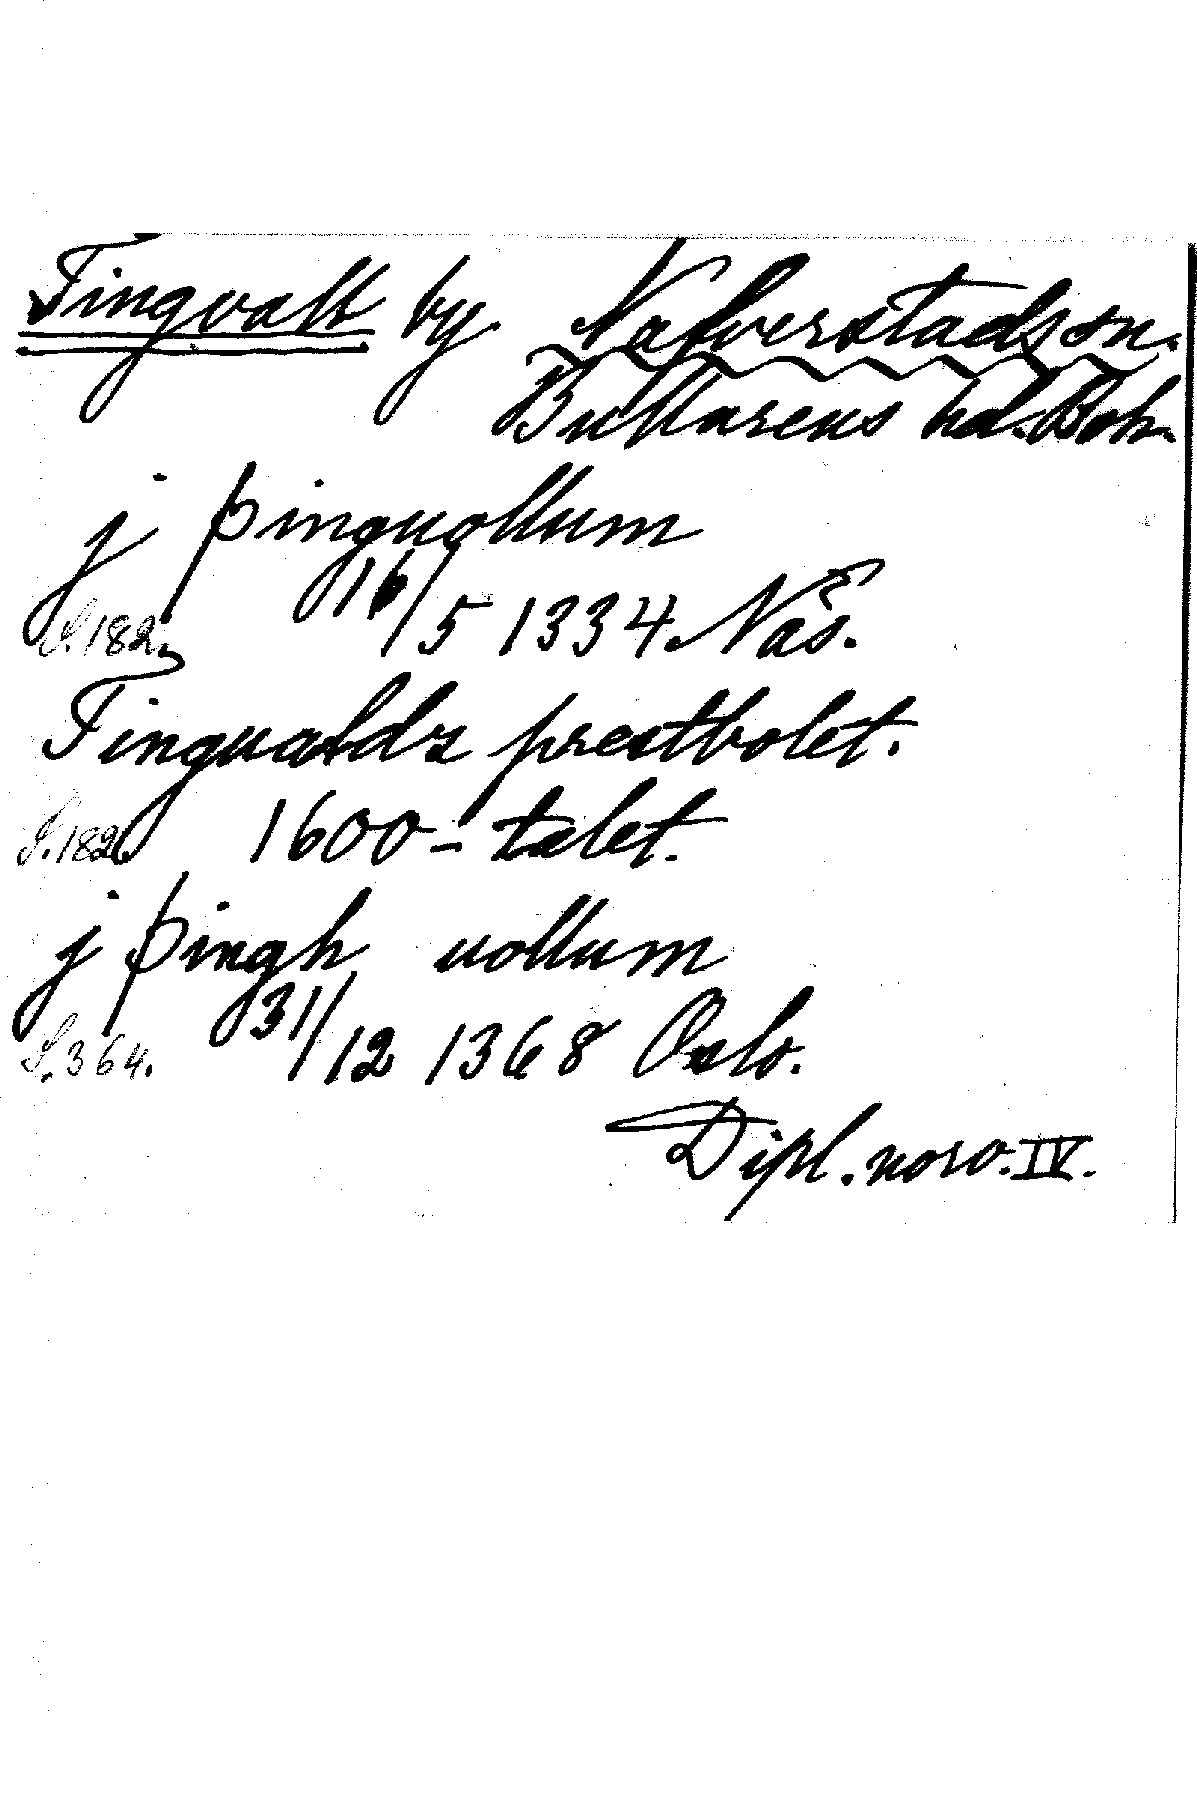 Tingvall by Nafverstads sn.
Bullarens hd. Boh.
j þinguollum
S. 182. 16/5 1334 Näs.
Tingualdz prestbolet.
S. 182. 1600-talet.
j þingh uollum
S. 364. 31/12 1368 Oslo.
Dipl. norv. IV.